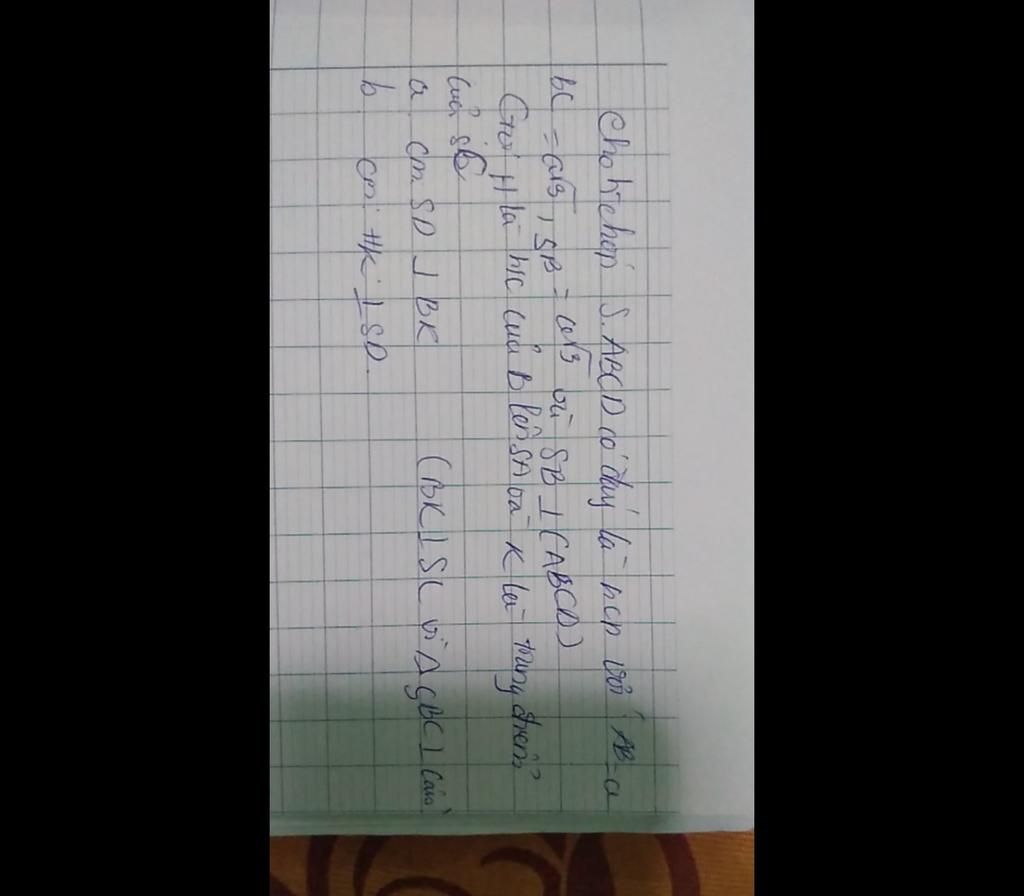 Cho h chóp S.ABCD có đáy là hcn với AB=a
BC = a√3, SB = a√3 và SB ⊥ (ABCD)
Gọi H là h/c của B lên SA và K là trung điểm
của SC
a cm SD ⊥ BK (BK ⊥ SC vì Δ SBC ⊥ cân)
b cm: HK ⊥ SD.